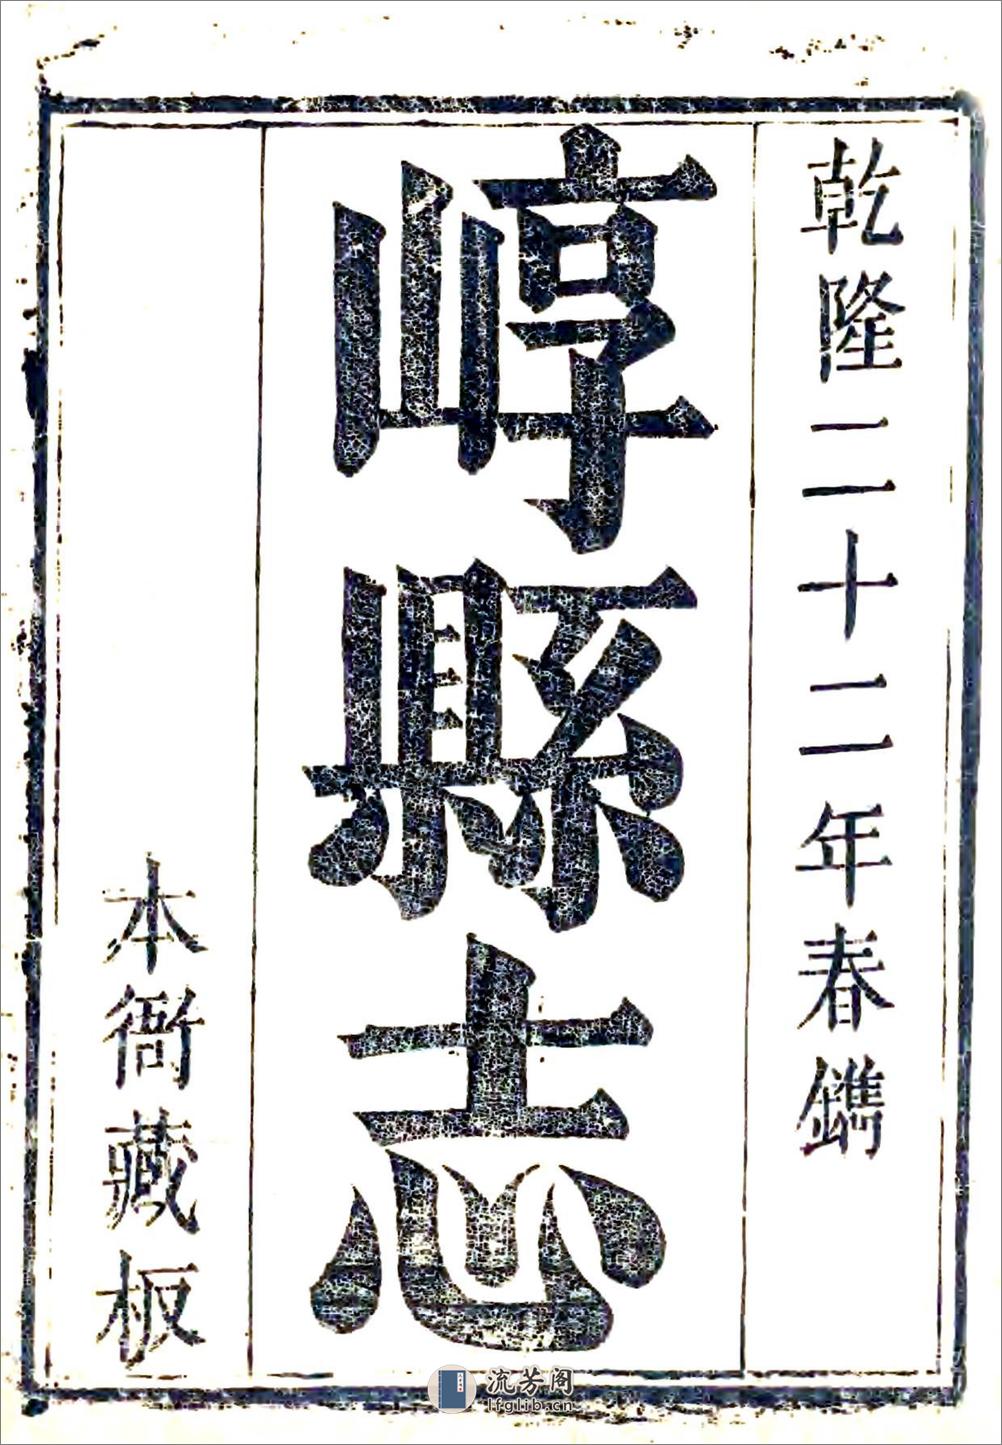 乾隆二十二年春鐫
崞縣志
本衙藏板
流芳阁
lfglib.cn